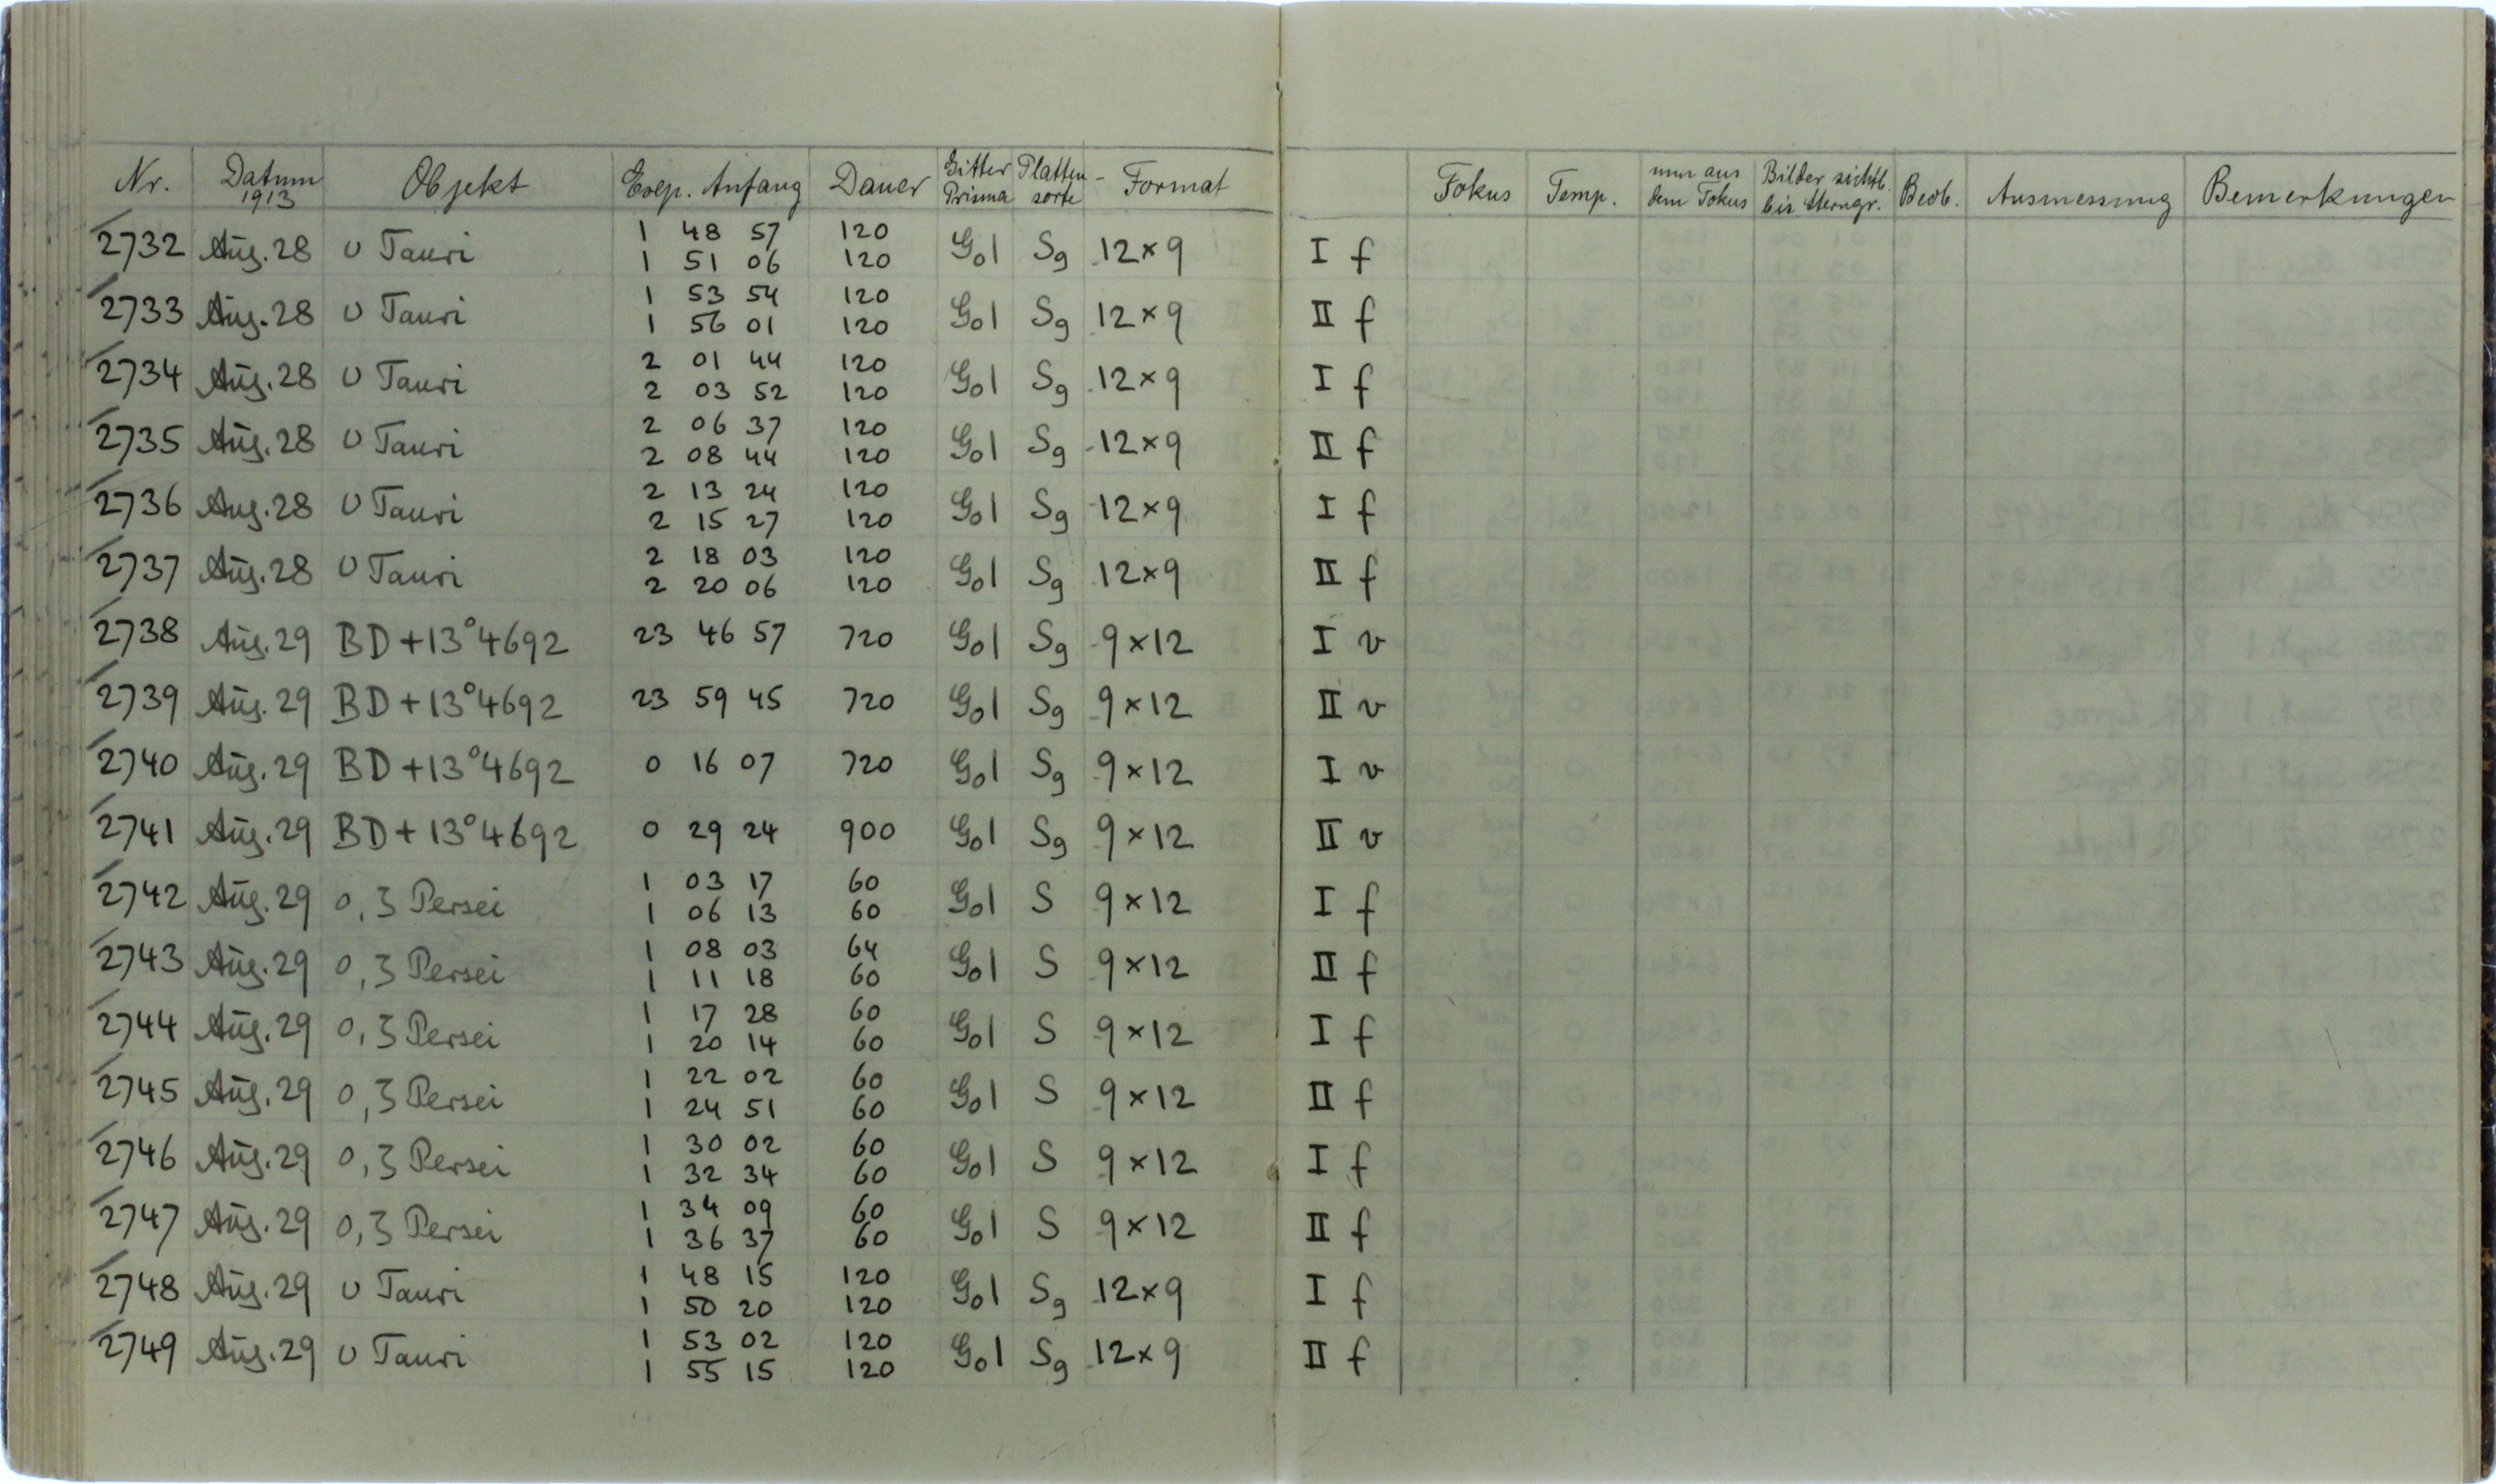 Nr. Datum 1913 Objekt Exp. Anfang Dauer Gitter Prisma Platten-sorte Format Fokus Temp. mm aus dem Fokus Bilder sichtb. bis Sterngr. Beob. Ausmessung Bemerkungen
2732 Aug. 28 υ Tauri 1 48 57 120 G01 Sg 12×9 I f
1 51 06 120
2733 Aug. 28 υ Tauri 1 53 54 120 G01 Sg 12×9 II f
1 56 01 120
2734 Aug. 28 υ Tauri 2 01 44 120 G01 Sg 12×9 I f
2 03 52 120
2735 Aug. 28 υ Tauri 2 06 37 120 G01 Sg 12×9 II f
2 08 44 120
2736 Aug. 28 υ Tauri 2 13 24 120 G01 Sg 12×9 I f
2 15 27 120
2737 Aug. 28 υ Tauri 2 18 03 120 G01 Sg 12×9 II f
2 20 06 120
2738 Aug. 29 BD +13°4692 23 46 57 720 G01 Sg 9×12 I v
2739 Aug. 29 BD +13°4692 23 59 45 720 G01 Sg 9×12 II v
2740 Aug. 29 BD +13°4692 0 16 07 720 G01 Sg 9×12 I v
2741 Aug. 29 BD +13°4692 0 29 24 900 G01 Sg 9×12 II v
2742 Aug. 29 ο, ζ Persei 1 03 17 60 G01 S 9×12 I f
1 06 13 60
2743 Aug. 29 ο, ζ Persei 1 08 03 64 G01 S 9×12 II f
1 11 18 60
2744 Aug. 29 ο, ζ Persei 1 17 28 60 G01 S 9×12 I f
1 20 14 60
2745 Aug. 29 ο, ζ Persei 1 22 02 60 G01 S 9×12 II f
1 24 51 60
2746 Aug. 29 ο, ζ Persei 1 30 02 60 G01 S 9×12 I f
1 32 34 60
2747 Aug. 29 ο, ζ Persei 1 34 09 60 G01 S 9×12 II f
1 36 37 60
2748 Aug. 29 υ Tauri 1 48 15 120 G01 Sg 12×9 I f
1 50 20 120
2749 Aug. 29 υ Tauri 1 53 02 120 G01 Sg 12×9 II f
1 55 15 120